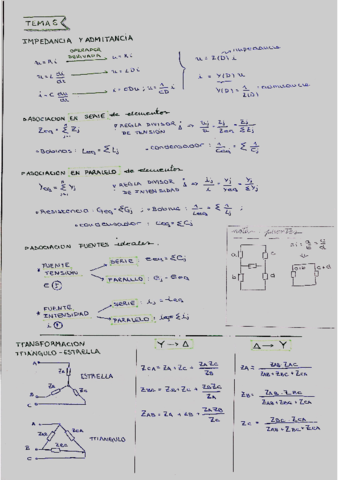 TEMA 5
IMPEDANCIA Y ADMITANCIA
OPERADOR
DERIVADA
u = Ri → u = Ri
u = L di/dt → u = LDi
i = C du/dt → i = CDu ; u = 1/CD i
u = Z(D) i → IMPEDANCIA
i = Y(D) u
Y(D) = 1/Z(D) → ADMITANCIA
ASOCIACION EN SERIE de elementos
Zeq = Σ Zj Y REGLA DIVISOR DE TENSIÓN → uj/u = Zj/Zeq = Zj/ΣZj
Bobinas: Leq = Σ Lj • condensador: 1/Ceq = Σ 1/Cj
ASOCIACION EN PARALELO de elementos
Yeq = Σ Yj Y REGLA DIVISOR DE INTENSIDAD → ij/i = Yj/Yeq = Yj/ΣYj
Resistencia: Geq = ΣGj ; • Bobina: 1/Leq = Σ 1/Lj
condensador: Ceq = ΣCj
ASOCIACIÓN FUENTES ideales.
FUENTE TENSIÓN
SERIE: eeq = Σej
PARALELO: ej = eeq
FUENTE INTENSIDAD
SERIE: ij = ieq
PARALELO: ieq = Σij
a
c
b
d
TRANSFORMACION
TRIANGULO - ESTRELLA
Y → Δ
Δ → Y
A
ZA
ZB
ZC
B
C
ESTRELLA
ZCA = ZA + ZC + ZAZC/ZB
ZA = ZAB·ZAC/(ZAB + ZBC + ZCA)
ZBC = ZB + ZC + ZBZC/ZA
ZB = ZAB·ZBC/(ZAB + ZBC + ZCA)
ZAB = ZA + ZB + ZAZB/ZC
ZC = ZBC·ZCA/(ZAB + ZBC + ZCA)
A
ZAB
ZCA
ZBC
B
C
TRIANGULO